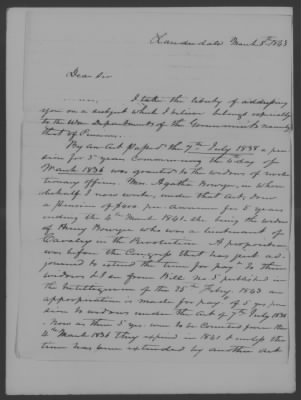 March 8th 1843
Dear Sir
I take the liberty of addressing
you on a subject which I believe belongs especially
to the War Department of the Government namely
that of Pension.
By an Act passed the 7th July 1838 a pen
sion for 5 years commencing the 4th day of
March 1836 was granted to the widows of revolu
tionary officers. Mrs. Agatha Bowyer, in whose
behalf I now write, under that act, drew
a pension of $400 per Annum for 5 years
ending the 4th March 1841. she being the widow
of Henry Bowyer who was a lieutenant of
Cavalry in the Revolution. A proposition
was before the Congress that has just ad
journed to extend the time for pay to these
widows & I see from Bill No 5 published in
the Intelligencer of the 25th Feby. 1843 an
appropriation is made for pay of 5 yrs pen
sion to widows under the Act of 7th July 1838
Now as these 5 yrs. were to be counted from the
4th March 1836 they expired in 1841 & unless the
time was extended by another act